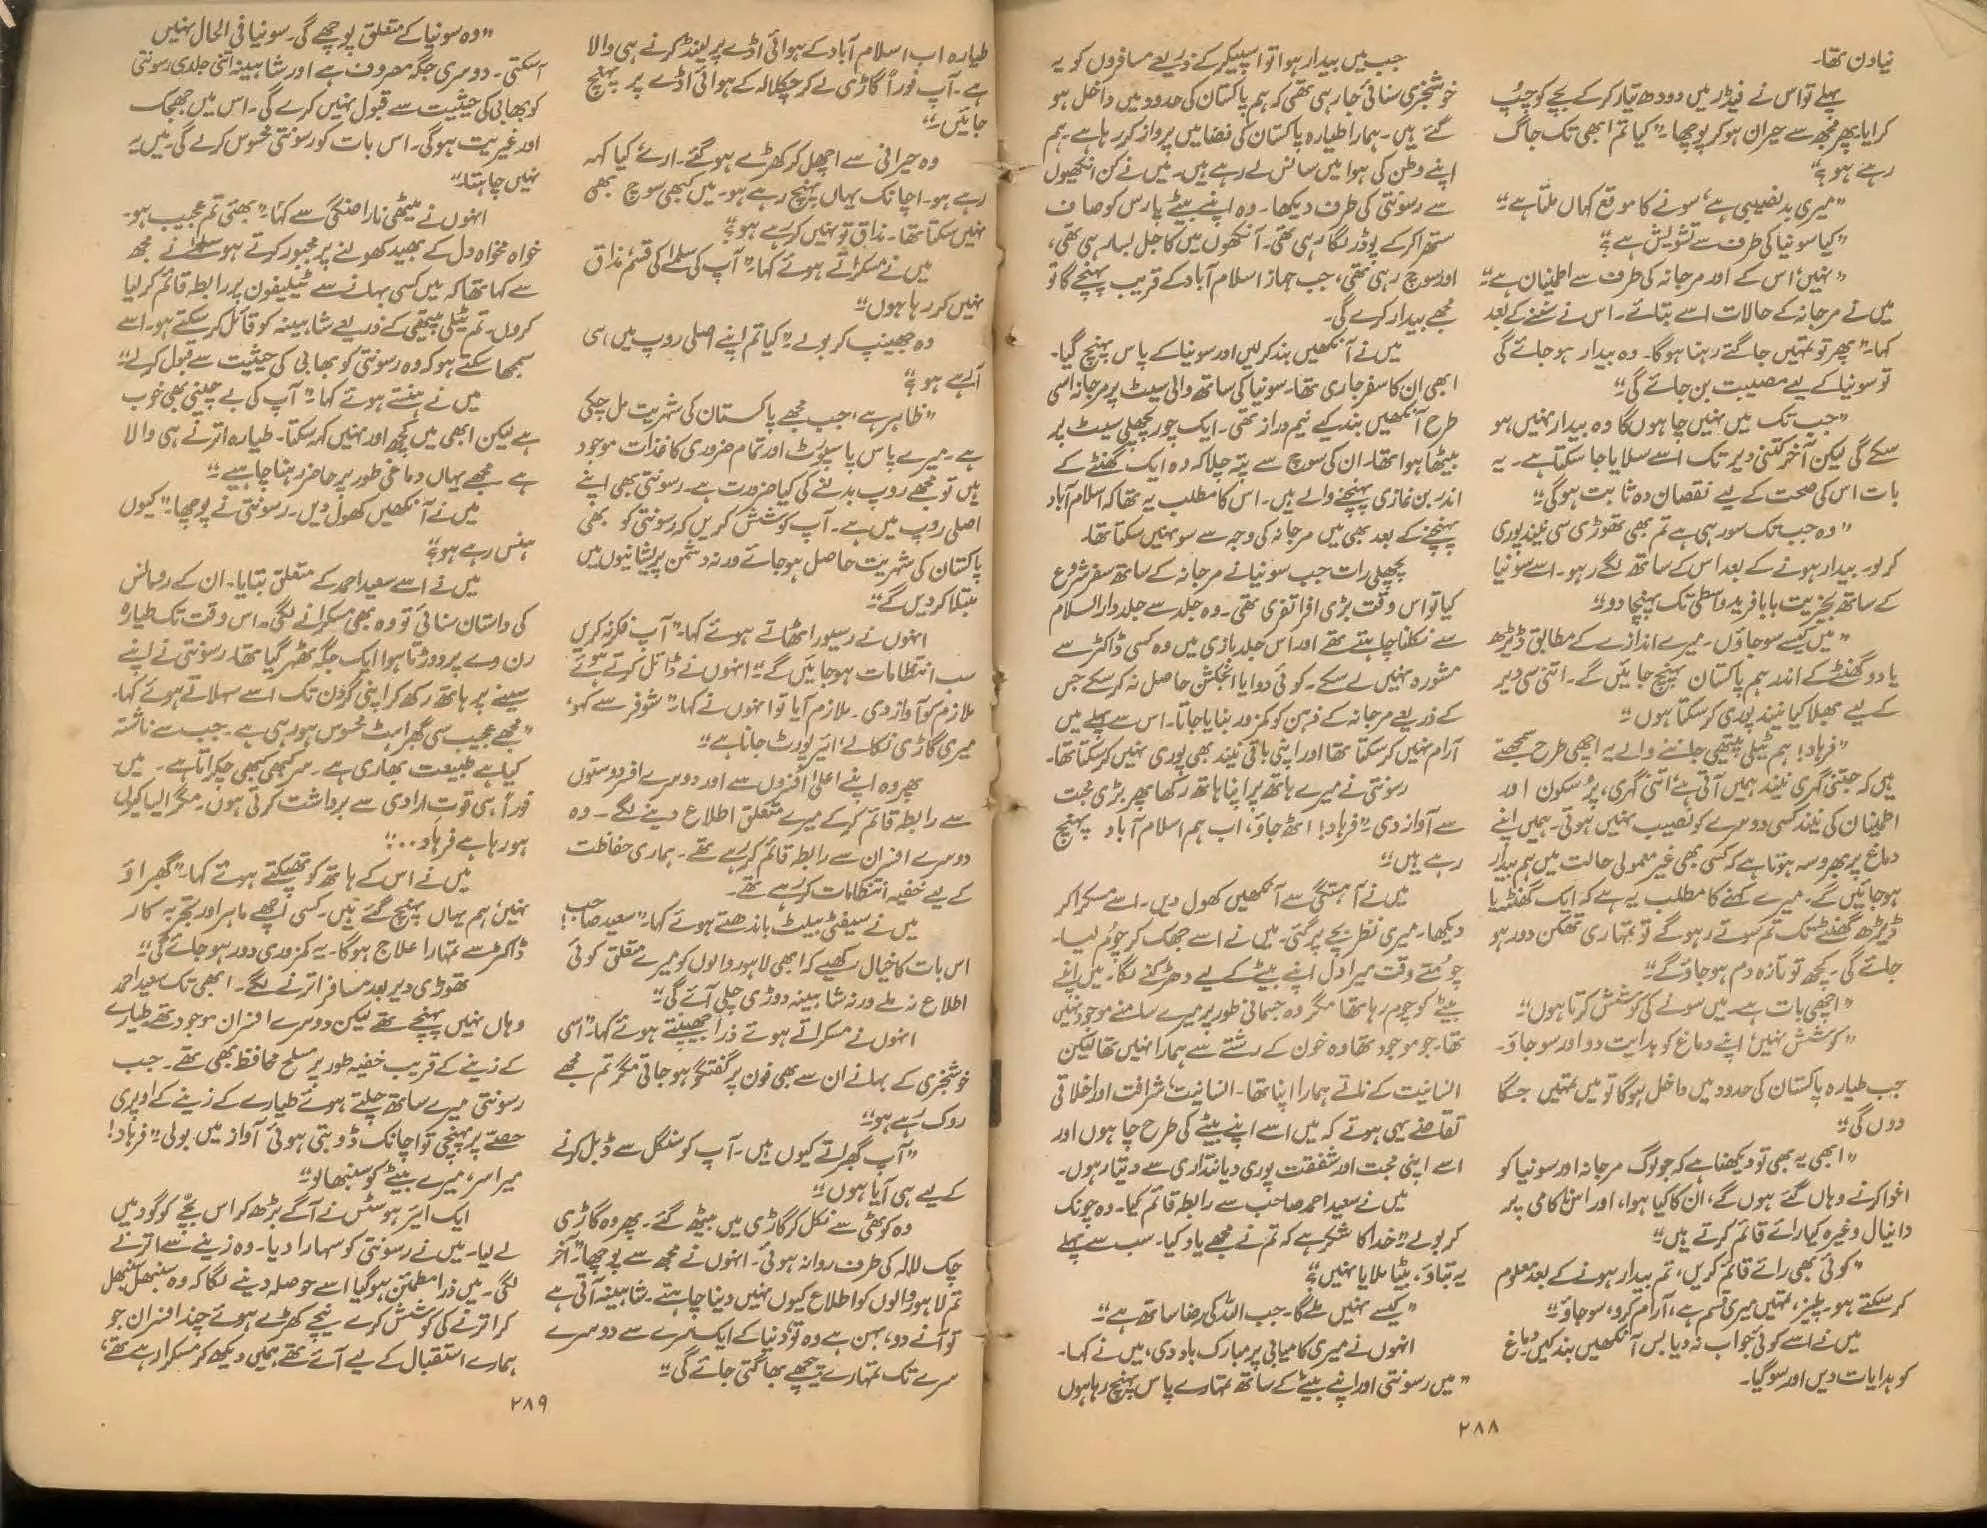 نیا دن تھا۔
پہلے تو اس نے فیڈر میں دودھ تیار کرکے بچے کو چپ
کرایا پھر مجھ سے حیران ہو کر پوچھا۔ "کیا تم ابھی تک جاگ
رہے ہو؟"
"میری بدنصیبی ہے، سونے کا موقع کہاں ملتا ہے۔"
"کیا سونیا کی طرف سے تشویش ہے؟"
"نہیں اس کے اور مرجانہ کی طرف سے اطمینان ہے۔"
میں نے مرجانہ کے حالات اسے بتائے۔ اس نے سننے کے بعد
کہا۔ "پھر تو تمہیں جاگتے رہنا ہوگا۔ وہ بیدار ہو جائے گی
تو سونیا کے لیے مصیبت بن جائے گی۔"
"جب تک میں نہیں چاہوں گا وہ بیدار نہیں ہو
سکے گی لیکن آخر کتنی دیر تک اسے سلایا جا سکتا ہے۔ یہ
بات اس کی صحت کے لیے نقصان دہ ثابت ہوگی۔"
"وہ جب تک سو رہی ہے تم بھی تھوڑی سی نیند پوری
کر لو۔ بیدار ہونے کے بعد اس کے ساتھ لگے رہو۔ اسے سونیا
کے ساتھ بخیریت بابا فرید واسطی تک پہنچا دو۔"
"میں کیسے سو جاؤں۔ میرے اندازے کے مطابق ڈیڑھ
یا دو گھنٹے کے اندر ہم پاکستان پہنچ جائیں گے۔ اتنی سی دیر
کے لیے بھلا کیا نیند پوری کر سکتا ہوں۔"
"فرہاد! ہم ٹیلی پیتھی جاننے والے یہ اچھی طرح سمجھتے
ہیں کہ جتنی گہری نیند ہمیں آتی ہے اتنی گہری، پُرسکون اور
اطمینان کی نیند کسی دوسرے کو نصیب نہیں ہوتی۔ ہمیں اپنے
دماغ پر بھروسہ ہوتا ہے کہ کسی بھی غیر معمولی حالت میں ہم بیدار
ہو جائیں گے۔ میرے کہنے کا مطلب یہ ہے کہ ایک گھنٹہ یا
ڈیڑھ گھنٹے تک تم سوتے رہو گے تو تمہاری تھکن دور ہو
جائے گی۔ کچھ تو تازہ دم ہو جاؤ گے۔"
"اچھی بات ہے۔ میں سونے کی کوشش کرتا ہوں۔"
"کوشش نہیں، اپنے دماغ کو ہدایت دو اور سو جاؤ۔
جب طیارہ پاکستان کی حدود میں داخل ہوگا تو میں تمہیں جگا
دوں گی۔"
"ابھی یہ بھی تو دیکھنا ہے کہ جو لوگ مرجانہ اور سونیا کو
اغوا کرنے وہاں گئے ہوں گے، ان کا کیا ہوا، اور اس ناکامی پر
دانیال وغیرہ کیا رائے قائم کرتے ہیں۔"
"کوئی بھی رائے قائم کریں، تم بیدار ہونے کے بعد معلوم
کر سکتے ہو۔ پلیز، تمہیں میری قسم ہے، آرام کرو، سو جاؤ۔"
میں نے اسے کوئی جواب نہ دیا بس آنکھیں بند کیں دماغ
کو ہدایات دیں اور سو گیا۔
جب میں بیدار ہوا تو اسپیکر کے ذریعے مسافروں کو یہ
خوشخبری سنائی جا رہی تھی کہ ہم پاکستان کی حدود میں داخل ہو
گئے ہیں۔ ہمارا طیارہ پاکستان کی فضا میں پرواز کر رہا ہے۔ ہم
اپنے وطن کی ہوا میں سانس لے رہے ہیں۔ میں نے کن انکھیوں
سے رسونتی کی طرف دیکھا۔ وہ اپنے بیٹے پارس کو صاف
ستھرا کرکے پوڈر لگا رہی تھی۔ آنکھوں میں کاجل لہسا رہی تھی،
اور سوچ رہی تھی، جب جہاز اسلام آباد کے قریب پہنچے گا تو
مجھے بیدار کرے گی۔
میں نے آنکھیں بند کر لیں اور سونیا کے پاس پہنچ گیا۔
ابھی ان کا سفر جاری تھا۔ سونیا کی ساتھ والی سیٹ پر مرجانہ اسی
طرح آنکھیں بند کیے نیم دراز تھی۔ ایک چور پچھلی سیٹ پر
بیٹھا ہوا تھا۔ ان کی سوچ سے پتہ چلا کہ وہ ایک گھنٹے کے
اندر بن غازی پہنچنے والے ہیں۔ اس کا مطلب یہ تھا کہ اسلام آباد
پہنچنے کے بعد بھی میں مرجانہ کی وجہ سے سو نہیں سکتا تھا۔
پچھلی رات جب سونیا نے مرجانہ کے ساتھ سفر شروع
کیا تو اس وقت بڑی افراتفری تھی۔ وہ جلد سے جلد دارالسلام
سے نکلنا چاہتے تھے اور اس جلد بازی میں وہ کسی ڈاکٹر سے
مشورہ نہیں لے سکے۔ کوئی دوا یا انجکشن حاصل نہ کر سکے جس
کے ذریعے مرجانہ کے ذہن کو کمزور بنایا جاتا۔ اس سے پہلے میں
آرام نہیں کر سکتا تھا اور اپنی باقی نیند بھی پوری نہیں کر سکتا تھا۔
رسونتی نے میرے ہاتھ پر اپنا ہاتھ رکھا پھر بڑی محبت
سے آواز دی۔ "فرہاد! اٹھ جاؤ، اب ہم اسلام آباد پہنچ
رہے ہیں۔"
میں نے آہستگی سے آنکھیں کھول دیں۔ اسے مسکرا کر
دیکھا۔ میری نظر بچے پر گئی۔ میں نے اسے جھک کر چوم لیا۔
چومتے وقت میرا دل اپنے بیٹے کے لیے دھڑکنے لگا۔ میں اپنے
بیٹے کو چوم رہا تھا مگر وہ جسمانی طور پر میرے سامنے موجود نہیں
تھا۔ جو موجود تھا وہ خون کے رشتے سے ہمارا نہیں تھا لیکن
انسانیت کے ناتے ہمارا اپنا تھا۔ انسانیت، شرافت اور اخلاقی
تقاضے یہی ہوتے کہ میں اسے اپنے بیٹے کی طرح چاہوں اور
اسے اپنی محبت اور شفقت پوری دیانتداری سے دیتا رہوں۔
میں نے سعید احمد صاحب سے رابطہ قائم کیا۔ وہ چونک
کر بولے۔ "خدا کا شکر ہے کہ تم نے مجھے یاد کیا۔ سب سے پہلے
یہ بتاؤ، بیٹا ملا یا نہیں؟"
"کیسے نہیں ملے گا۔ جب اللہ کی رضا ساتھ ہے۔"
انہوں نے میری کامیابی پر مبارک باد دی، میں نے کہا۔
"میں رسونتی اور اپنے بیٹے کے ساتھ تمہارے پاس پہنچ رہا ہوں
۲۸۸
طیارہ اب اسلام آباد کے ہوائی اڈے پر لینڈ کرنے ہی والا
ہے۔ آپ فوراً گاڑی لے کر چکلالہ کے ہوائی اڈے پر پہنچ
جائیں۔"
وہ حیرانی سے اچھل کر کھڑے ہو گئے۔ ارے کیا کہہ
رہے ہو۔ اچانک یہاں پہنچ رہے ہو۔ میں کبھی سوچ بھی
نہیں سکتا تھا۔ مذاق تو نہیں کر رہے ہو؟"
میں نے مسکراتے ہوئے کہا۔ "آپ کی سلمےٰ کی قسم، مذاق
نہیں کر رہا ہوں۔"
وہ جھینپ کر بولے۔ "کیا تم اپنے اصلی روپ میں ہی
آ رہے ہو؟"
"ظاہر ہے، جب مجھے پاکستان کی شہریت مل چکی
ہے۔ میرے پاس پاسپورٹ اور تمام ضروری کاغذات موجود
ہیں تو مجھے روپ بدلنے کی کیا ضرورت ہے۔ رسونتی بھی اپنے
اصلی روپ میں ہے۔ آپ کوشش کریں کہ رسونتی کو بھی
پاکستان کی شہریت حاصل ہو جائے ورنہ دشمن پریشانیوں میں
مبتلا کر دیں گے۔"
انہوں نے رسیور اٹھاتے ہوئے کہا۔ "آپ فکر نہ کریں
سب انتظامات ہو جائیں گے۔" انہوں نے ڈائل کرتے ہوئے
ملازم کو آواز دی۔ ملازم آیا تو انہوں نے کہا۔ "شوفر سے کہو،
میری گاڑی نکالے، ائیرپورٹ جانا ہے۔"
پھر وہ اپنے اعلیٰ افسروں سے اور دوسرے افسر دوستوں
سے رابطہ قائم کرکے میرے متعلق اطلاع دینے لگے۔ وہ
دوسرے افسران سے رابطہ قائم کر رہے تھے۔ ہماری حفاظت
کے لیے خفیہ انتظامات کر رہے تھے۔
میں نے سیفٹی بیلٹ باندھتے ہوئے کہا۔ "سعید صاحب!
اس بات کا خیال رکھیے کہ ابھی لاہور والوں کو میرے متعلق کوئی
اطلاع نہ ملے ورنہ شاہینہ دوڑی چلی آئے گی۔"
انہوں نے مسکراتے ہوئے ذرا جھینپتے ہوئے کہا۔ "اسی
خوشخبری کے بہانے ان سے بھی فون پر گفتگو ہو جاتی مگر تم مجھے
روک رہے ہو۔"
"آپ گھبراتے کیوں ہیں۔ آپ کو سنگل سے ڈبل کرنے
کے لیے ہی آیا ہوں۔"
وہ کوٹھی سے نکل کر گاڑی میں بیٹھ گئے۔ پھر وہ گاڑی
چک لالہ کی طرف روانہ ہوئی۔ انہوں نے مجھ سے پوچھا۔ "آخر
تم لاہور والوں کو اطلاع کیوں نہیں دینا چاہتے۔ شاہینہ آتی ہے
تو آنے دو، بہن ہے وہ تو، دنیا کے ایک سرے سے دوسرے
سرے تک تمہارے پیچھے بھاگتی جائے گی۔"
"وہ سونیا کے متعلق پوچھے گی۔ سونیا فی الحال نہیں
آسکتی۔ دوسری جگہ مصروف ہے اور شاہینہ اتنی جلدی رسونتی
کو بھابی کی حیثیت سے قبول نہیں کرے گی۔ اس میں جھجک
اور غیریت ہوگی۔ اس بات کو رسونتی محسوس کرے گی۔ میں یہ
نہیں چاہتا۔"
انہوں نے میٹھی ناراضگی سے کہا۔ "بھئی تم عجیب ہو۔
خواہ مخواہ دل کے بھید کھولنے پر مجبور کرتے ہو سلمےٰ نے مجھ
سے کہا تھا کہ میں کسی بہانے سے ٹیلیفون پر رابطہ قائم کر لیا
کروں۔ تم ٹیلی پیتھی کے ذریعے شاہینہ کو قائل کر سکتے ہو۔ اسے
سمجھا سکتے ہو کہ وہ رسونتی کو بھابی کی حیثیت سے قبول کرلے۔"
میں نے ہنستے ہوئے کہا۔ "آپ کی بے چینی بھی خوب
ہے لیکن ابھی میں کچھ اور نہیں کہہ سکتا۔ طیارہ اترنے ہی والا
ہے مجھے یہاں دماغی طور پر حاضر رہنا چاہیے۔"
میں نے آنکھیں کھول دیں۔ رسونتی نے پوچھا۔ "کیوں
ہنس رہے ہو؟"
میں نے اسے سعید احمد کے متعلق بتایا۔ ان کے رومانس
کی داستان سنائی تو وہ بھی مسکرانے لگی۔ اس وقت تک طیارہ
رن وے پر دوڑتا ہوا ایک جگہ ٹھہر گیا تھا۔ رسونتی نے اپنے
سینے پر ہاتھ رکھ کر اپنی گردن تک اسے سہلاتے ہوئے کہا۔
"مجھے عجیب سی گھبراہٹ محسوس ہو رہی ہے۔ جب سے ناشتہ
کیا ہے طبیعت بھاری ہے۔ سر کبھی کبھی چکراتا ہے۔ میں
فوراً ہی قوت ارادی سے برداشت کرتی ہوں۔ مگر ایسا کیوں
ہو رہا ہے فرہاد...."
میں نے اس کے ہاتھ کو تھپکتے ہوئے کہا۔ "گھبراؤ
نہیں، ہم یہاں پہنچ گئے ہیں۔ کسی اچھے ماہر اور تجربہ کار
ڈاکٹر سے تمہارا علاج ہوگا۔ یہ کمزوری دور ہو جائے گی۔"
تھوڑی دیر بعد مسافر اترنے لگے۔ ابھی تک سعید احمد
وہاں نہیں پہنچے تھے لیکن دوسرے افسران موجود تھے۔ طیارے
کے زینے کے قریب خفیہ طور پر مسلح محافظ بھی تھے۔ جب
رسونتی میرے ساتھ چلتے ہوئے طیارے کے زینے کے اوپری
حصے پر پہنچی تو اچانک ڈوبتی ہوئی آواز میں بولی۔ "فرہاد!
میرا سر، میرے بیٹے کو سنبھالو۔"
ایک ایئر ہوسٹس نے آگے بڑھ کر اس بچے کو گود میں
لے لیا۔ میں نے رسونتی کو سہارا دیا۔ وہ زینے سے اترنے
لگی۔ میں ذرا مطمئن ہو گیا اسے حوصلہ دینے لگا کہ وہ سنبھل سنبھل
کر اترنے کی کوشش کرے نیچے کھڑے ہوئے چند افسران جو
ہمارے استقبال کے لیے آئے تھے ہمیں دیکھ کر مسکرا رہے تھے،
۲۸۹